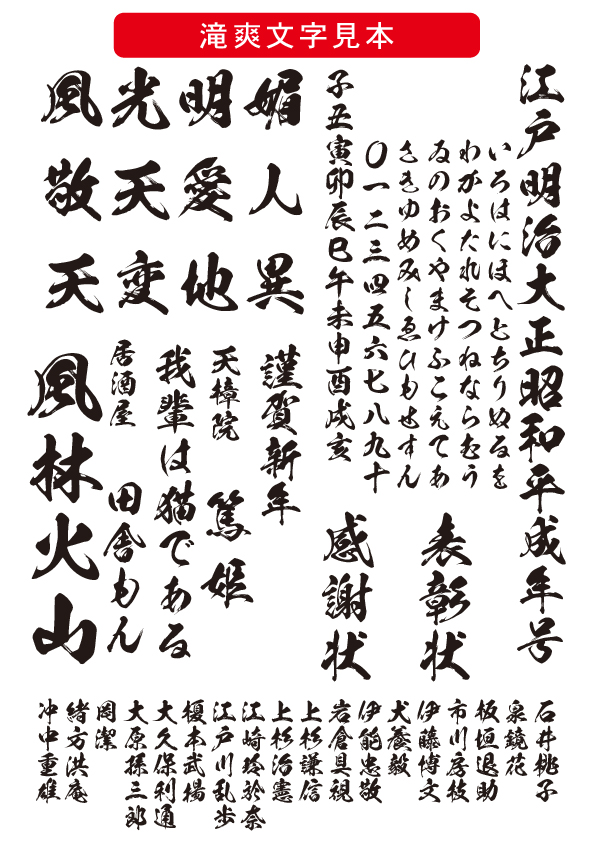 滝爽文字見本
江戸明治大正昭和平成年号
いろはにほへとちりぬるを
わかよたれそつねならむう
ゐのおくやまけふこえてあ
さきゆめみしゑひもせすん
〇一二三四五六七八九十
子丑寅卯辰巳午未申酉戌亥
表彰状
感謝状
媚人異
明愛地
光天変
風敬天
謹賀新年
天樟院 篤姫
我輩は猫である
居酒屋 田舎もん
風林火山
石井桃子
泉鏡花
板垣退助
市川房枝
伊藤博文
犬養毅
伊能忠敬
岩倉具視
上杉謙信
上杉治憲
江崎玲於奈
江戸川乱歩
榎本武揚
大久保利通
大原孫三郎
岡潔
緒方洪庵
沖中重雄